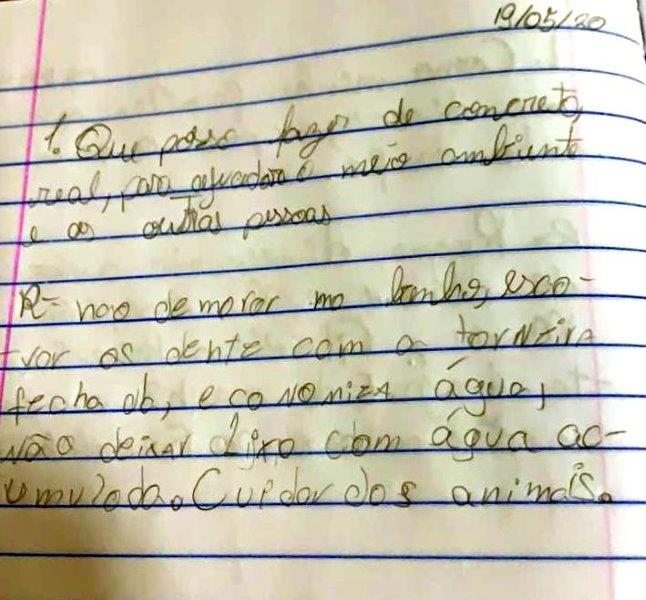 19/05/20
1. Que posso fazer de concreto,
real, para ajudar o meio ambiente
e as outras pessoas
R- não demorar no banho, esco-
var os dente com a torneira
fecha ab, economiza água,
não deixar lixo com água ac-
umulada. Cuedar dos animais.